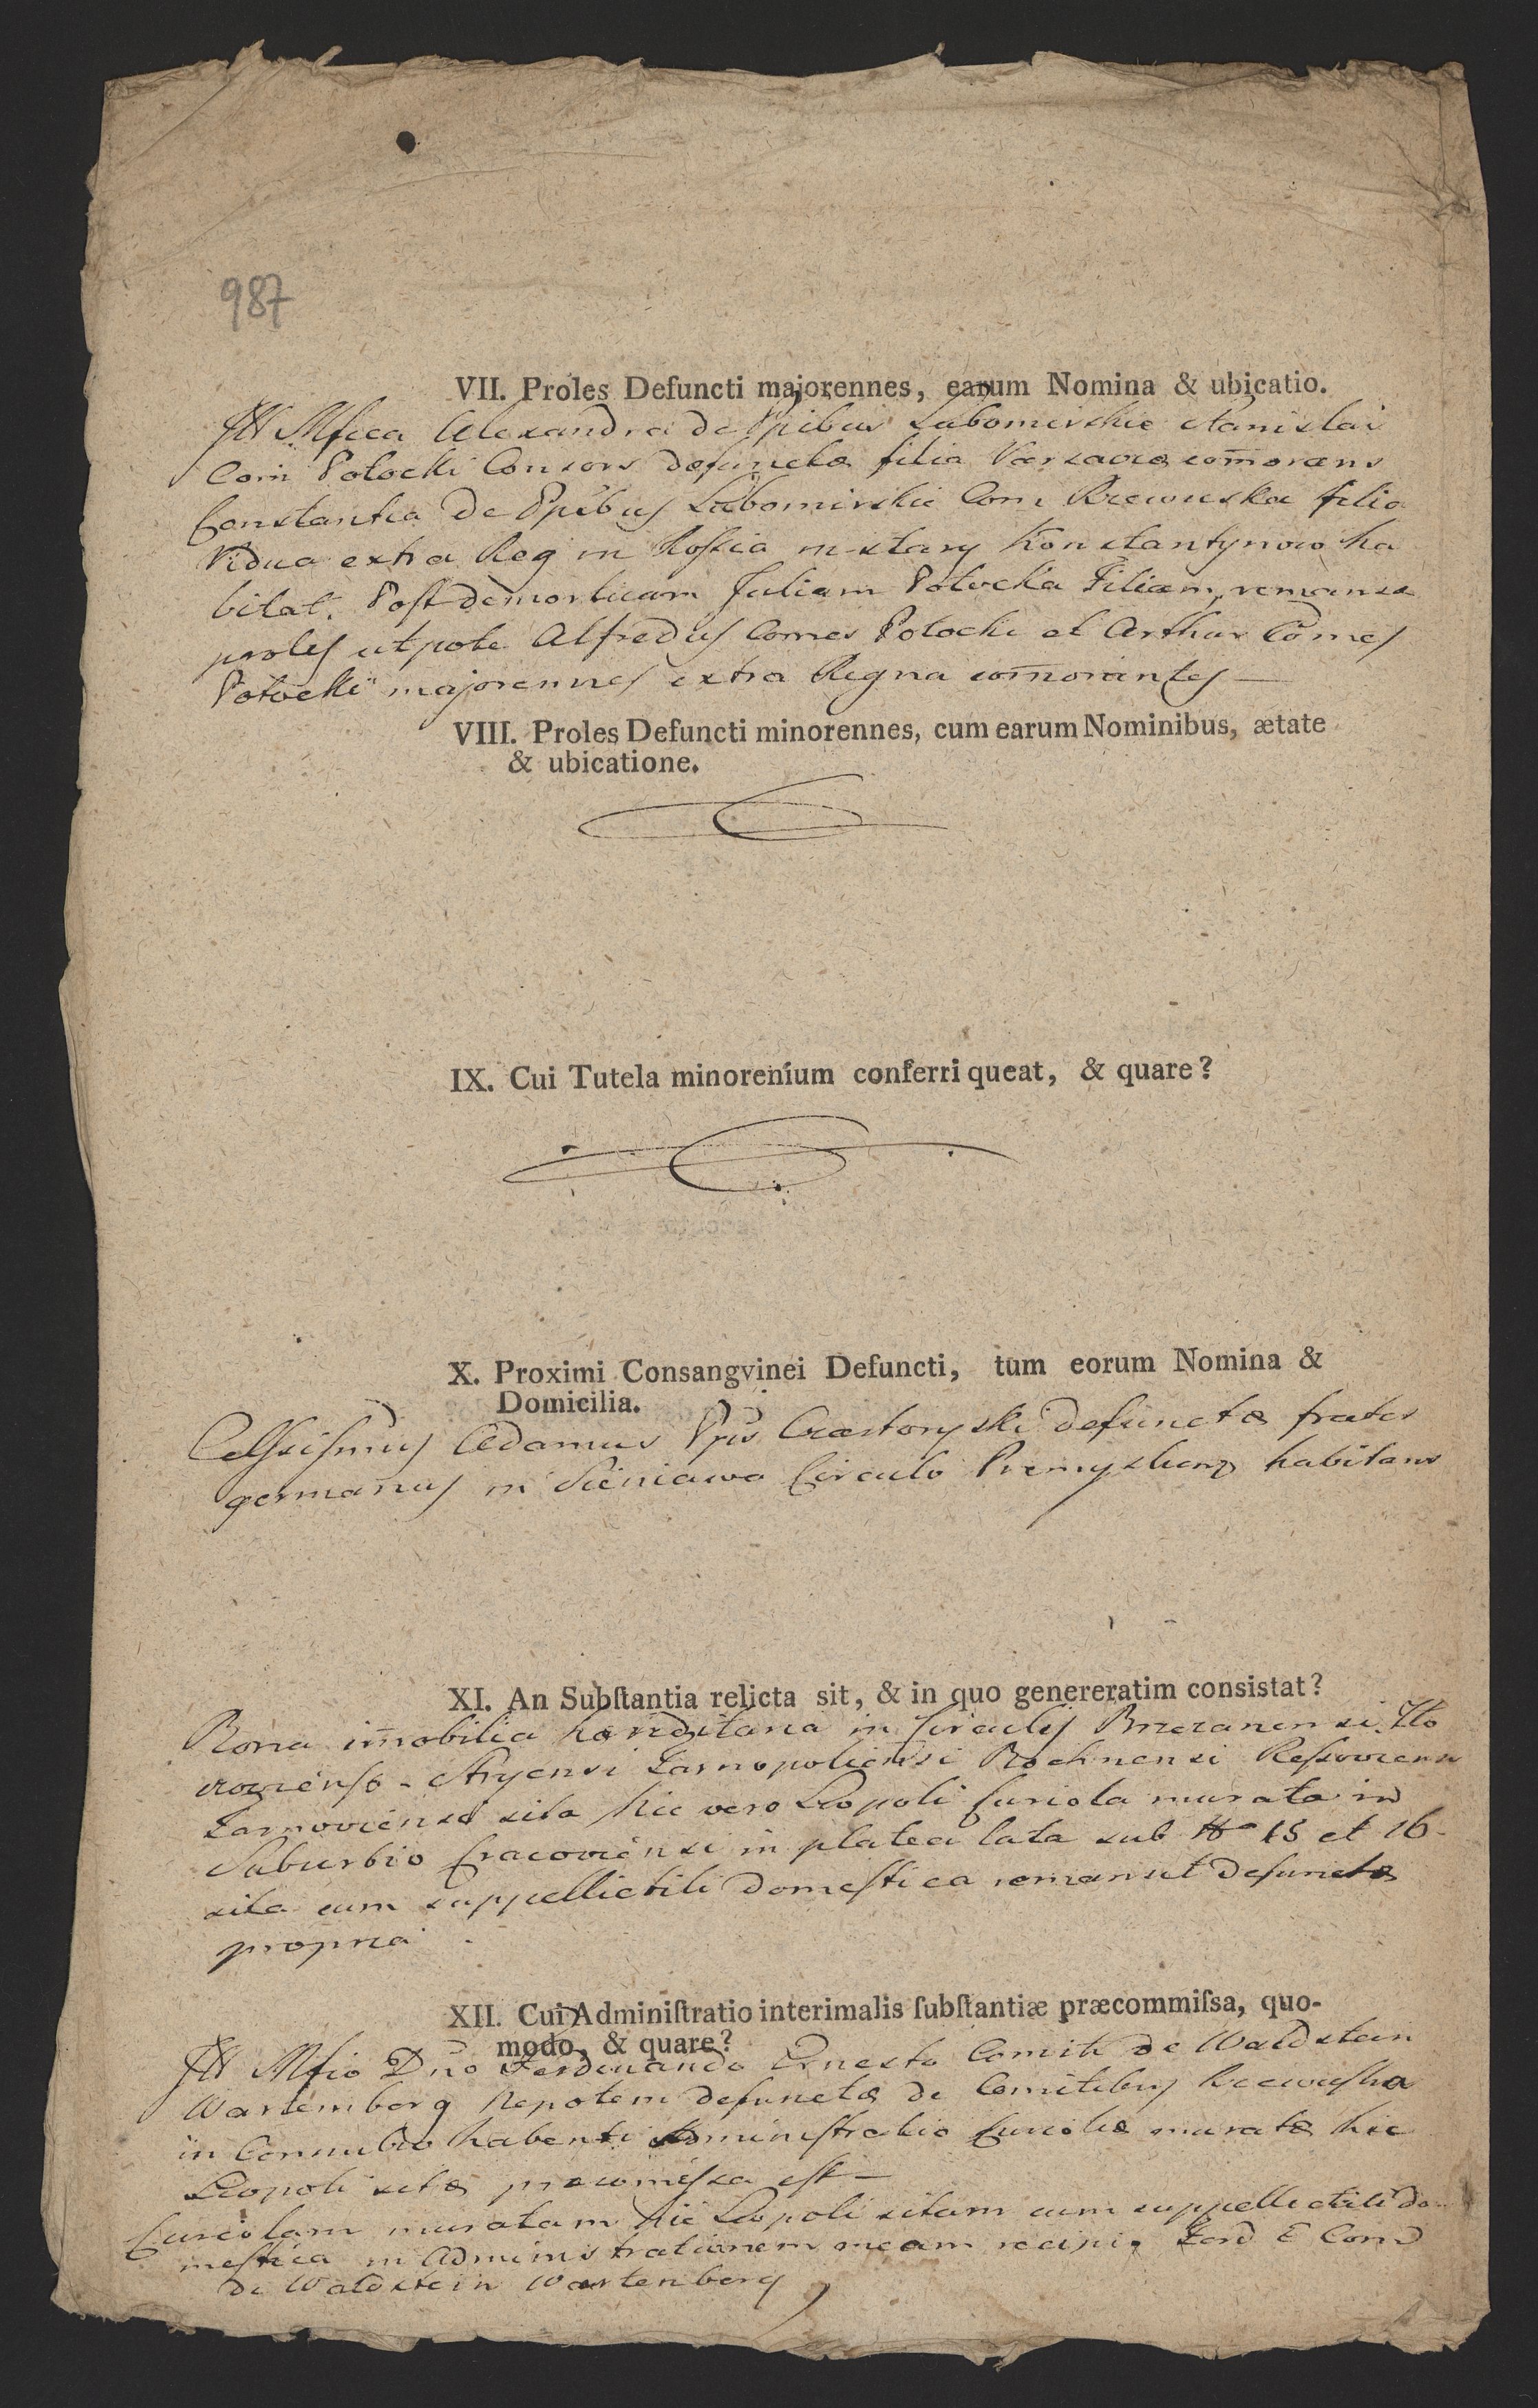 987
VII. Proles Defuncti majorennes, earum Nomina & ubicatio.
Ill Mfica Alexandra de Ppibus Lubomirskie Stanislai
Com Potocki Consors defunctæ filia Varsaviæ com̄orans
Constantia De Ppibus Lubomirskie Com Rzewuska filia
Vidua extra Reg in Rossia in stary Konstantynow ha
bitat. Post demortuam Juliam Potocka Filiam, remansa
proles utpote Alfredus Comes Potocki et Arthur Comes
Potocki majorennes extra Regna com̄orantes —
VIII. Proles Defuncti minorennes, cum earum Nominibus, ætate
& ubicatione.
IX. Cui Tutela minorenium conferri queat, & quare?
X. Proximi Consangvinei Defuncti, tum eorum Nomina &
Domicilia.
Celsissimus Adamus Pps Czartoryski defunctæ frater
germanus in Sieniawa Circulo Premysliens habitans
XI. An Subſtantia relicta sit, & in quo genereratim consistat?
Bona im̄obilia hæreditaria in Circulis Brzezanensi Zlo
czoviensi - Stryensi Tarnopoliensi Bochnensi Ressoviens
Tarnoviensi sita hic vero Leopoli Curiola murata in
Suburbio Cracoviensi in platea lata sub No 15 et 16
sita cum suppellictili domestica remansit defunctæ
propria.
XII. Cui Adminiſtratio interimalis ſubſtantiæ præcommiſsa, quo-
modo, & quare?
Ill Mfio Dno Ferdinando Ernesto Comiti de Waldstein
Wartemberg Nepotem defunctæ de Comitibus Rzewuska
in Connubio habenti Administratio Curiolæ muratæ hic
Leopoli sitæ præcom̄issa est —
Curiolam muratam hic Leopoli sitam cum suppellectili do-
mestica in Administrationem meam recipi. Ferd E Com
de Waldstein Wartenberg